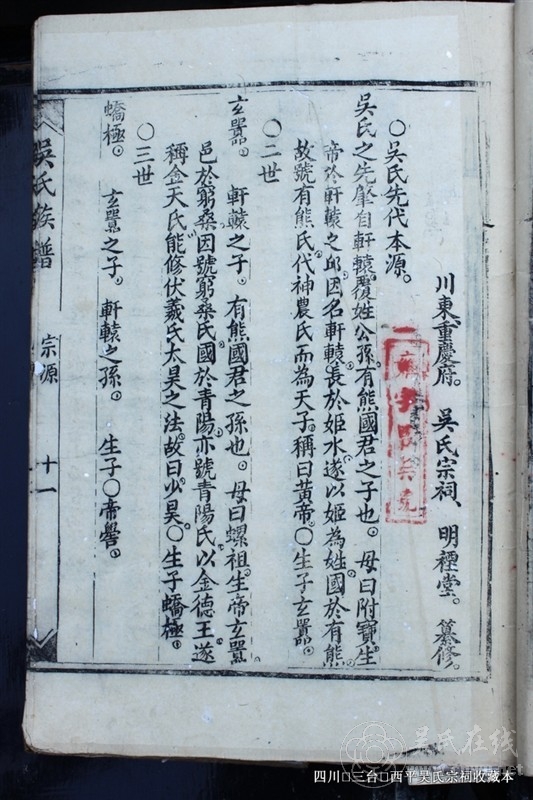 川東重慶府。吳氏宗祠、明禋堂。纂修。
○吳氏先代本源。
吳氏之先肇自軒轅。覆姓公孫。有熊國君之子也。母曰附寶。生
帝於軒轅之邱。因名軒轅。長於姬水。遂以姬為姓。國於有熊。
故號有熊氏。代神農氏而為天子。稱曰黃帝。○生子玄囂。
○二世
玄囂。軒轅之子。有熊國君之孫也。母曰螺祖。生帝玄囂。
邑於窮桑。因號窮桑氏。國於青陽。亦號青陽氏。以金德王。遂
稱金天氏。能修伏羲氏太昊之法。故曰少昊。○生子蟜極。
○三世
蟜極。玄囂之子。軒轅之孫。生子○帝嚳。
吳氏族譜 宗源 十一
吳氏在线
四川□三台□西平吴氏宗祠收藏本